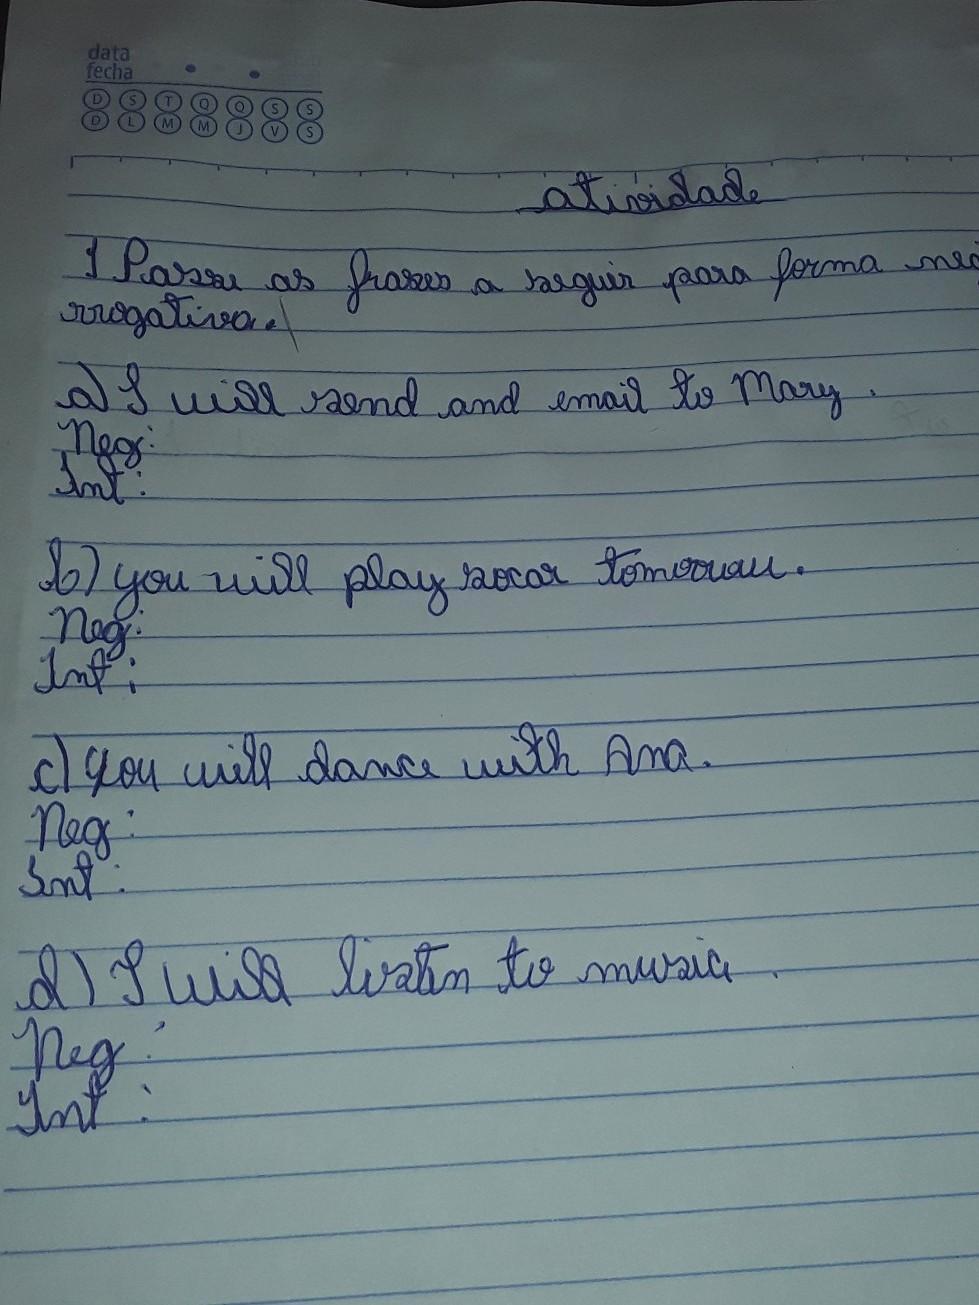 data
fecha
D S T Q Q S S
D L M M J V S
atividade
1 Passe as frases a seguir para forma neg
rrogativa.
a) I will send and email to Mary.
Neg:
Int:
b) you will play socar tomorrow.
Neg:
Int:
c) you will dance with Ana.
Neg:
Int:
d) I will listen to music.
Neg:
Int: